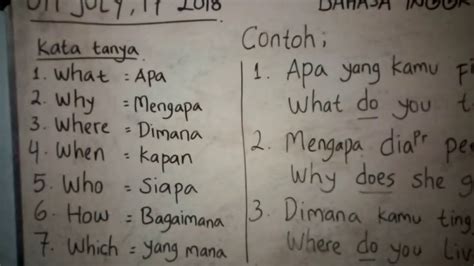 JULY, 17 2018
BAHASA
Kata tanya
1. What = Apa
2. Why = Mengapa
3. Where = Dimana
4. When = Kapan
5. Who = Siapa
6. How = Bagaimana
7. Which = yang mana
Contoh ;
1. Apa yang kamu
What do you
2. Mengapa dia Pr
Why does she
3. Dimana kamu
Where do you